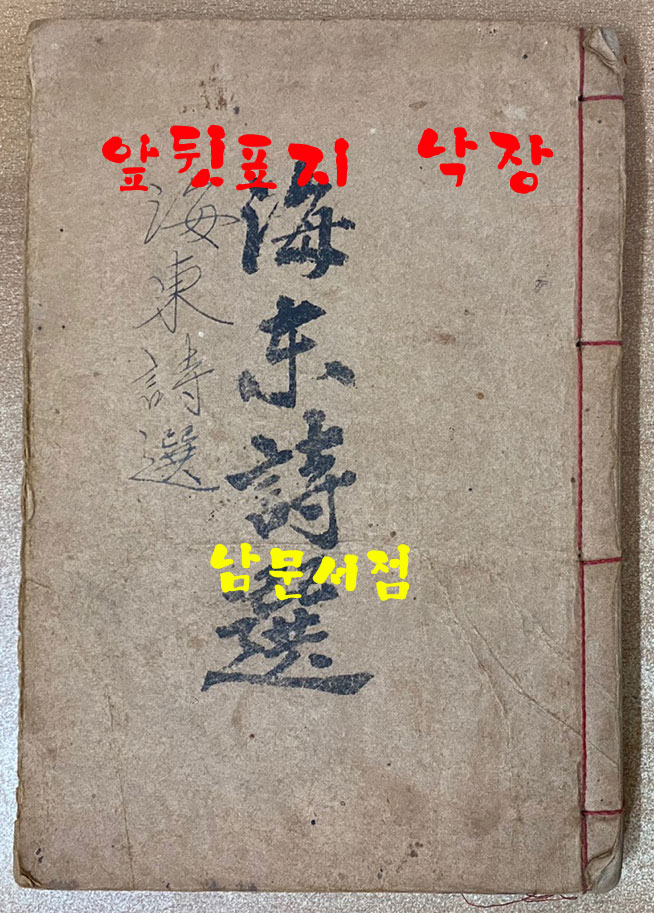 앞뒷표지 낙장
海东詩選
海東詩選
남문서점